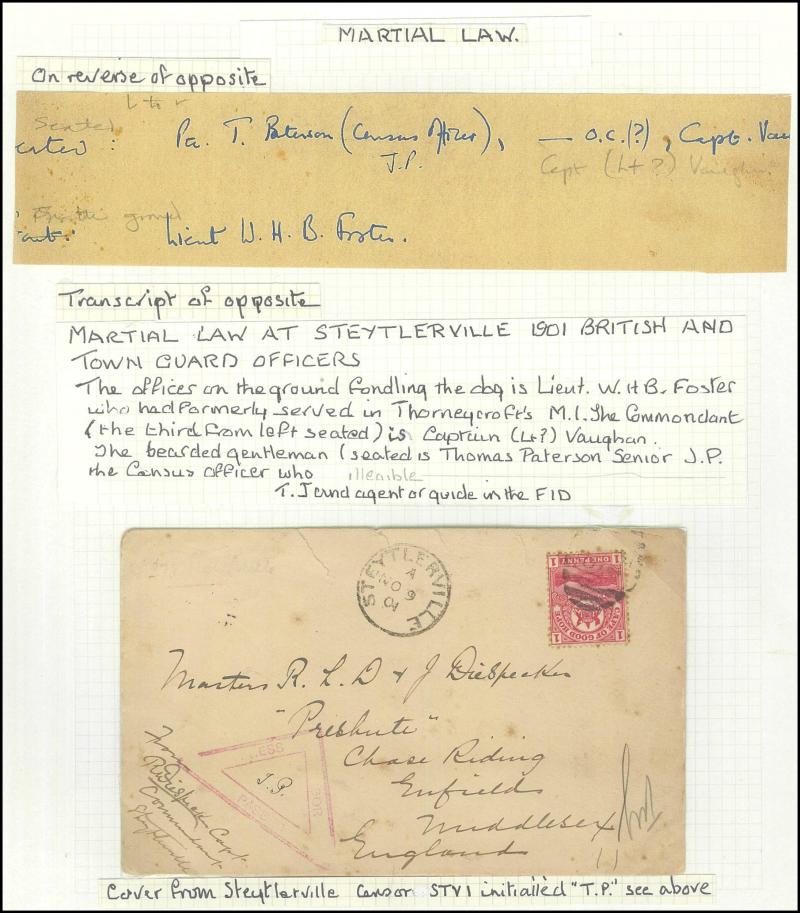 MARTIAL LAW.
On reverse of opposite
L to r
Seated
Pa. T. Paterson (Census Officer), — O.C.(?), Capt. Vau
J.P.
Capt (Lt?) Vaughan.
On the ground
Lieut W. H. B. Foster.
Transcript of opposite
MARTIAL LAW AT STEYTLERVILLE 1901 BRITISH AND
TOWN GUARD OFFICERS
The officer on the ground fondling the dog is Lieut. W.H.B. Foster
who had formerly served in Thorneycroft's M.I. The Commondant
(the third from left seated) is Captain (Lt?) Vaughan.
The bearded gentleman (seated is Thomas Paterson Senior J.P.
the Census officer who illegible
T.J and agent or guide in the FID
STEYTLERVILLE
A
NO 9
01
ONE PENNY
1 1
CAPE OF GOOD HOPE
1 1
Masters R. L. D & J Diespecker
"Preshute"
Chase Riding
Enfield
Middlesex
England
PASSED
PRESS
FOR
T.P.
From
R Diespecker Capt
Commandant
Steytlerville
Cover from Steytlerville Censor STV1 initialled "T.P." see above